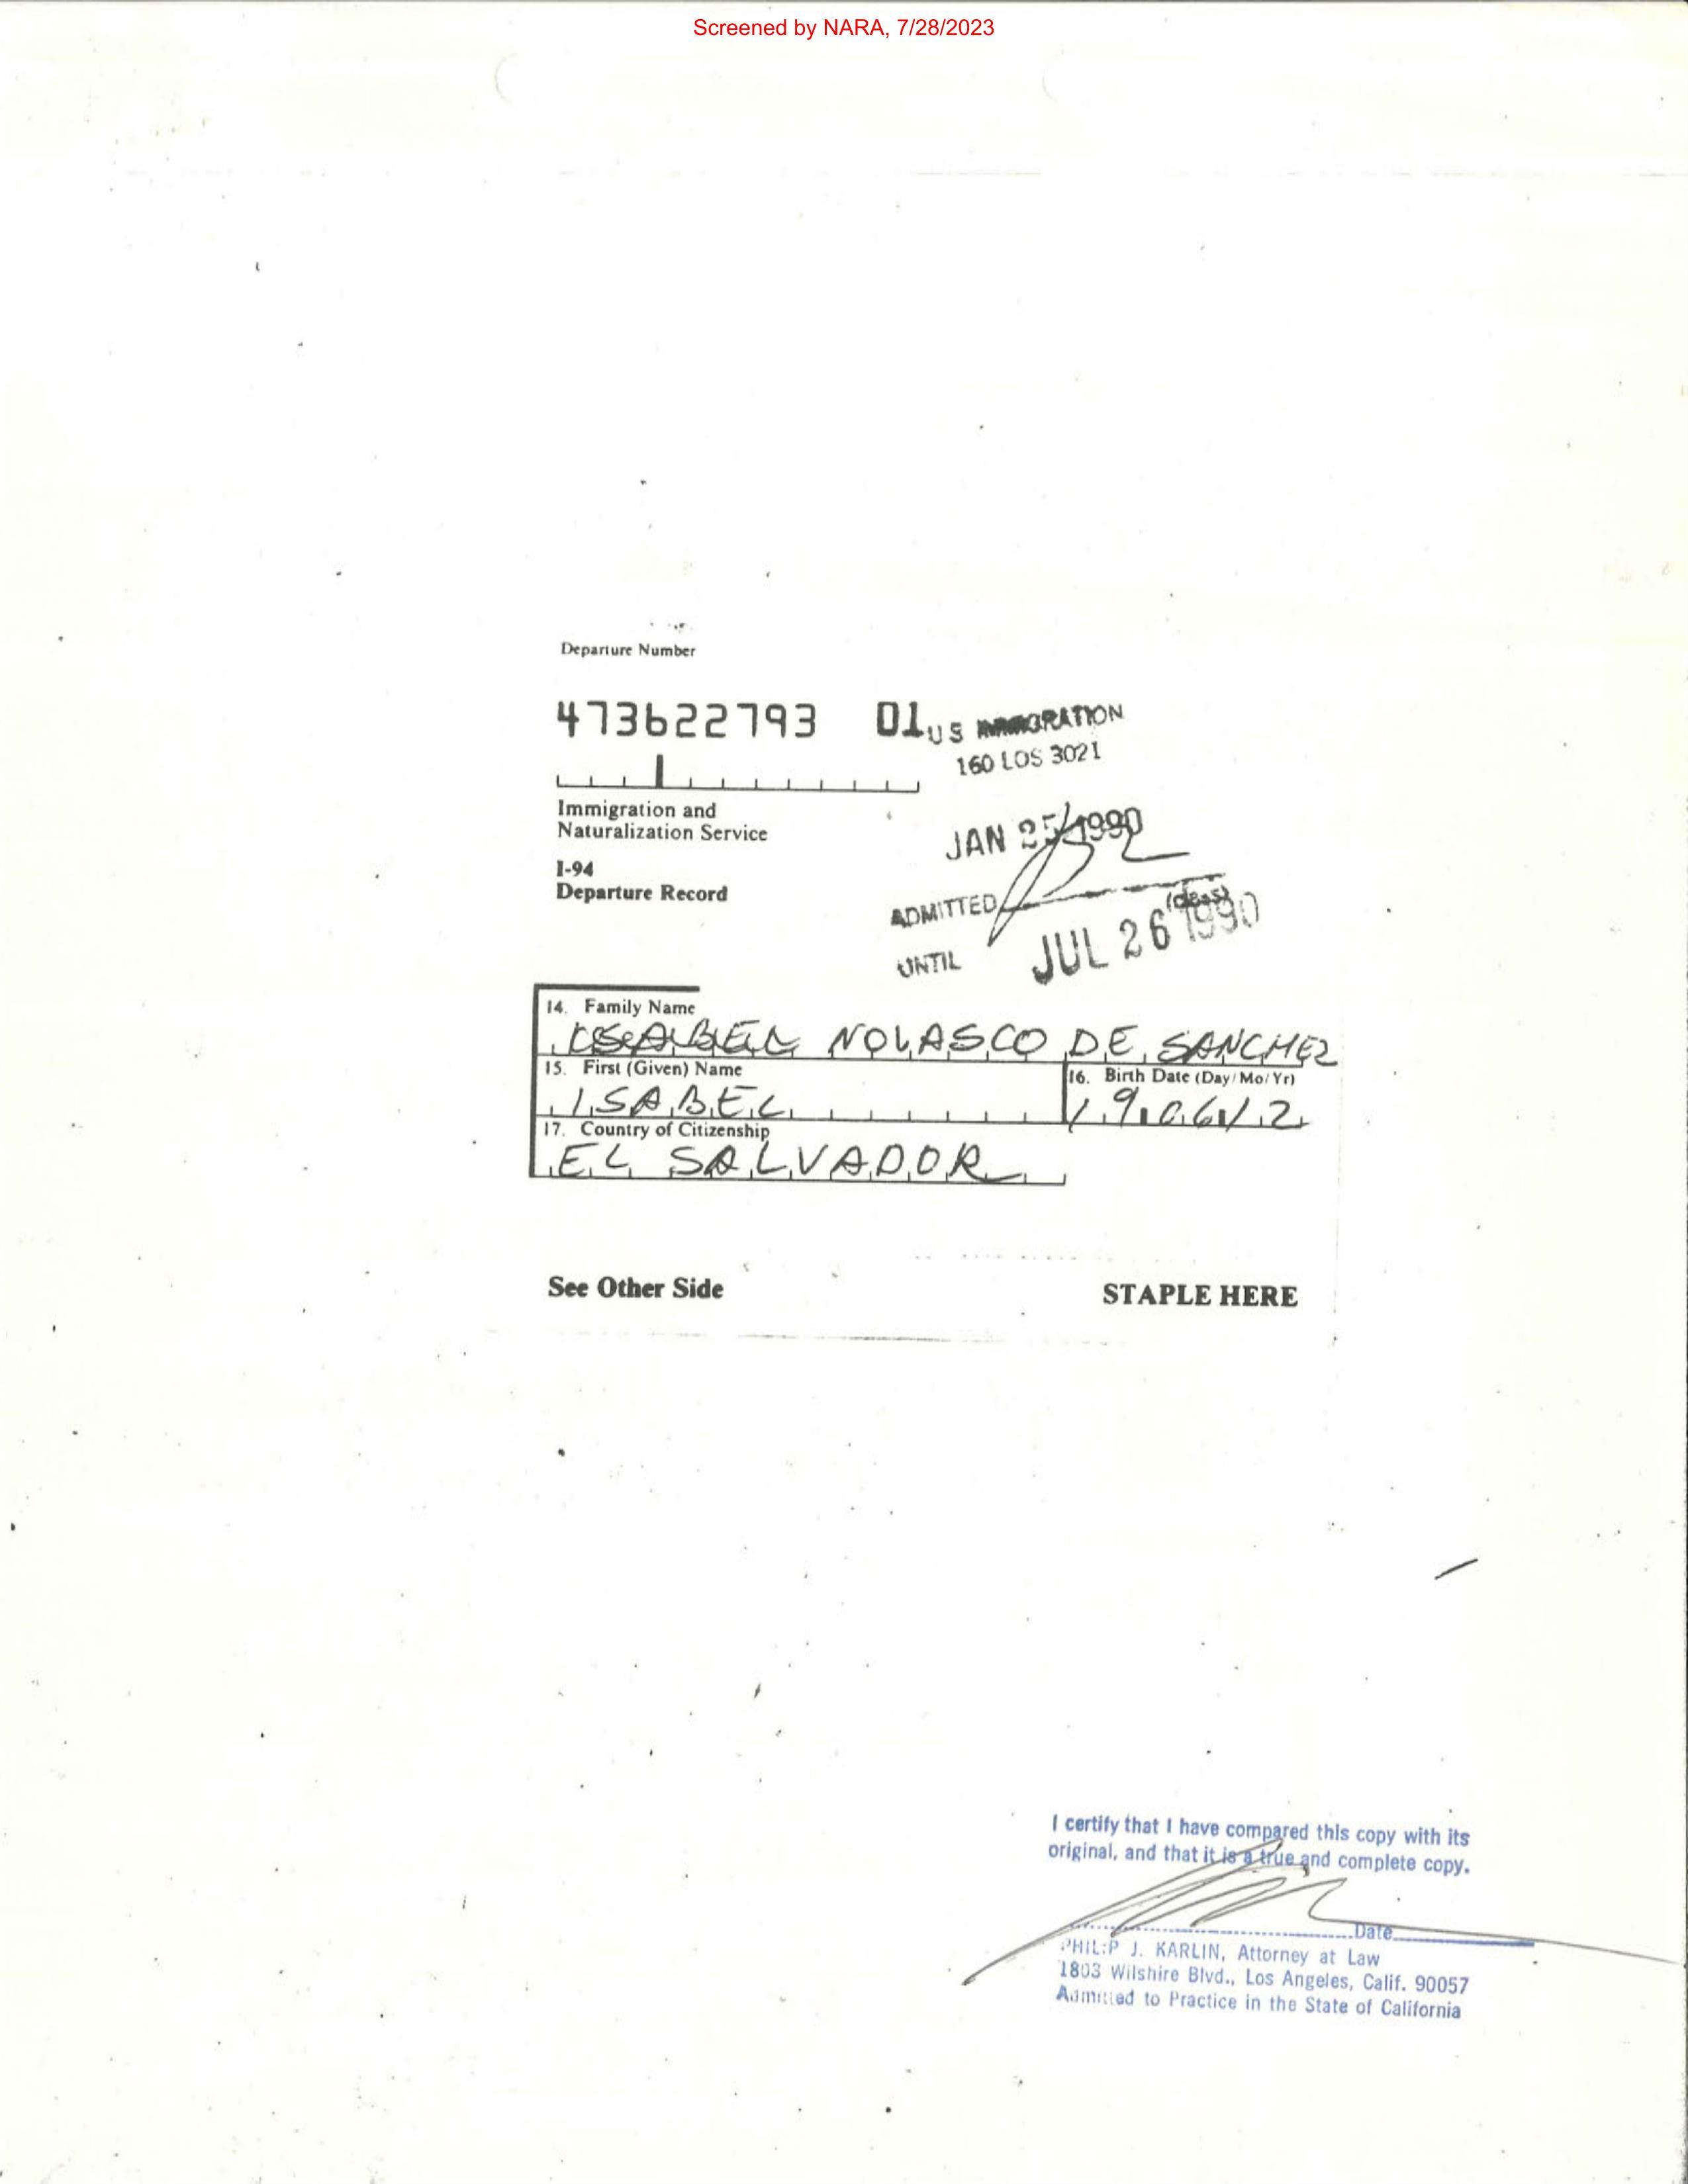 Screened by NARA, 7/28/2023
Departure Number
473622793 01
US IMMIGRATION
160 LOS 3021
Immigration and
Naturalization Service
JAN 25 1990
I-94
Departure Record
ADMITTED
(class)
UNTIL JUL 26 1990
14. Family Name
ISABEL NOLASCO DE SANCHEZ
15. First (Given) Name
16. Birth Date (Day/Mo/Yr)
ISABEL
190612
17. Country of Citizenship
EL SALVADOR
See Other Side
STAPLE HERE
I certify that I have compared this copy with its
original, and that it is a true and complete copy.
Date
PHILIP J. KARLIN, Attorney at Law
1803 Wilshire Blvd., Los Angeles, Calif. 90057
Admitted to Practice in the State of California